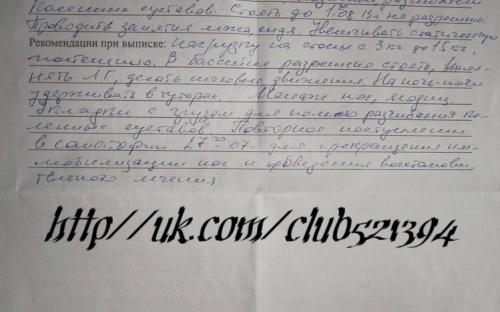 коленных суставов. Стоять до 1.08.13 не разрешено.
Проводить занятия лежа, сидя. Увеличивать статическую
Рекомендации при выписке: нагрузку на стопы с 3 кг до 15 кг,
постепенно. В бассейне разрешено стоять, выпол-
нять ЛГ, делать шаговые движения. На ночь ноги
удерживать в туторах. Массаж ног, ягодиц.
Укладки с грузом для полного разгибания ко-
ленных суставов. Повторное поступление
в санаторий 27 07. для прекращения им-
мобилизации ног и проведения восстанови-
тельного лечения.
http//uk.com/club521394